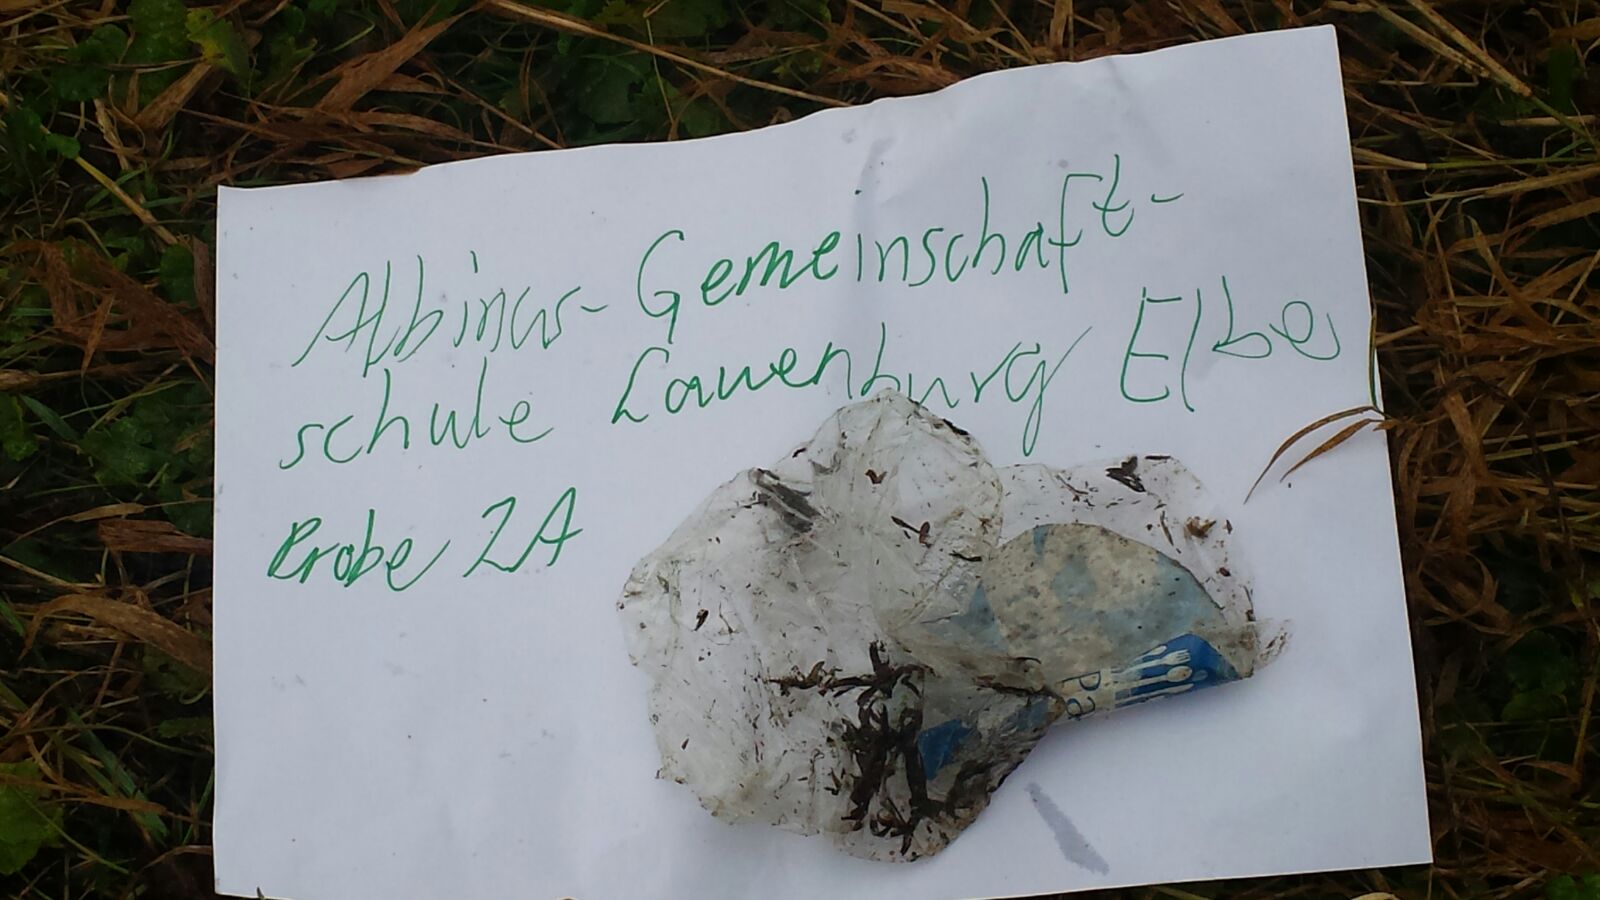 Albinus-Gemeinschaft-
schule Lauenburg Elbe
Probe 2A
Pa